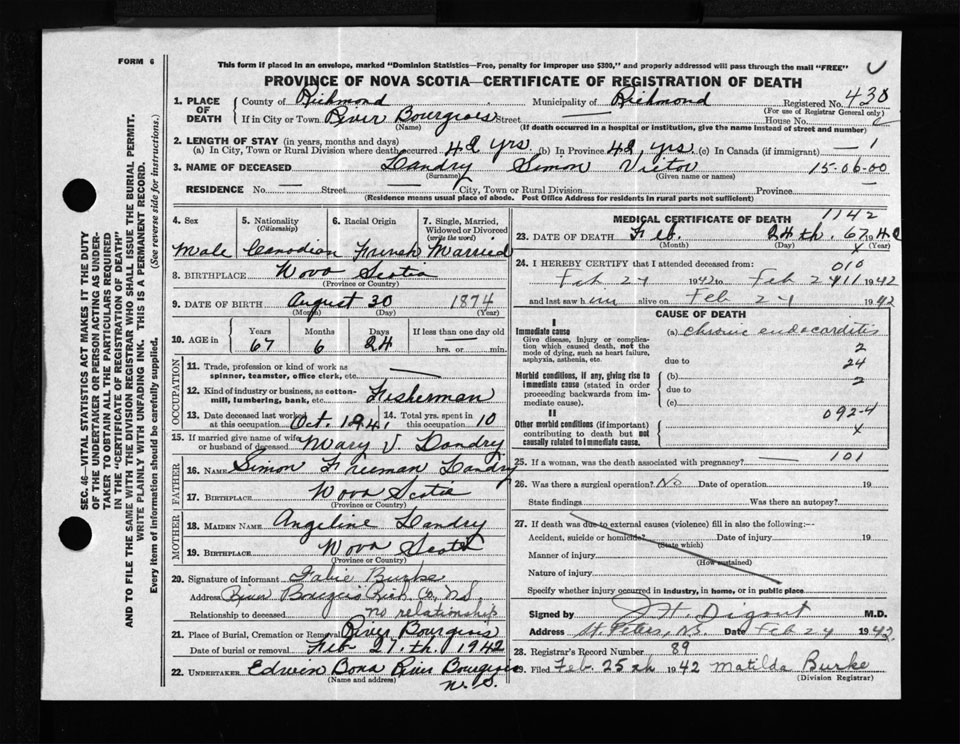 FORM 6
This form if placed in an envelope, marked "Dominion Statistics—Free, penalty for improper use $300," and properly addressed will pass through the mail "FREE"
PROVINCE OF NOVA SCOTIA—CERTIFICATE OF REGISTRATION OF DEATH
SEC. 46—VITAL STATISTICS ACT MAKES IT THE DUTY
OF THE UNDERTAKER OR PERSON ACTING AS UNDER-
TAKER TO OBTAIN ALL THE PARTICULARS REQUIRED
IN THE "CERTIFICATE OF REGISTRATION OF DEATH"
AND TO FILE THE SAME WITH THE DIVISION REGISTRAR WHO SHALL ISSUE THE BURIAL PERMIT.
WRITE PLAINLY WITH UNFADING INK. THIS IS A PERMANENT RECORD.
Every item of information should be carefully supplied. (See reverse side for instructions.)
1. PLACE OF DEATH
County of Richmond Municipality of Richmond Registered No. 430
(For use of Registrar General only)
If in City or Town River Bourgeois Street — House No.
(Name) (If death occurred in a hospital or institution, give the name instead of street and number)
2. LENGTH OF STAY (in years, months and days)
(a) In City, Town or Rural Division where death occurred 48 yrs. (b) In Province 48 yrs. (c) In Canada (if immigrant) — 1
3. NAME OF DECEASED Landry Simon Victor 15-06-00
(Surname) (Given name or names)
RESIDENCE No. — Street — City, Town or Rural Division Province —
(Residence means usual place of abode. Post Office Address for residents in rural parts not sufficient)
4. Sex 5. Nationality 6. Racial Origin 7. Single, Married,
(Citizenship) Widowed or Divorced
(write the word)
Male Canadian French Married
8. BIRTHPLACE Nova Scotia
(Province or Country)
9. DATE OF BIRTH August 30 1874
(Month) (Day) (Year)
10. AGE in Years Months Days If less than one day old
67 6 24 — hrs. or min.
OCCUPATION
11. Trade, profession or kind of work as
spinner, teamster, office clerk, etc. —
12. Kind of industry or business, as cotton-
mill, lumbering, bank, etc. Fisherman
13. Date deceased last worked at this occupation Oct. 1941 14. Total yrs. spent in this occupation 10
15. If married give name of wife
or husband of deceased Mary V. Landry
FATHER
16. NAME Simon Freeman Landry
17. BIRTHPLACE Nova Scotia
(Province or Country)
MOTHER
18. MAIDEN NAME Angeline Landry
19. BIRTHPLACE Nova Scotia
(Province or Country)
20. Signature of informant Burke
Address River Bourgeois Rich. Co. N.S.
Relationship to deceased no relationship
21. Place of Burial, Cremation or Removal River Bourgeois
Date of burial or removal Feb 27.th. 1942
22. UNDERTAKER Edwin Bona River Bourgeois
(Name and address) N.S.
MEDICAL CERTIFICATE OF DEATH 1142
23. DATE OF DEATH Feb. 24th. 67 1942
(Month) (Day) x (Year)
24. I HEREBY CERTIFY that I attended deceased from: 010
Feb 24 1942 to Feb 24 11 1942
and last saw him alive on Feb 24 1942
CAUSE OF DEATH
I
Immediate cause (a) chronic endocarditis
Give disease, injury or complica-
tion which caused death, not the 2
mode of dying, such as heart failure,
asphyxia, asthenia, etc. due to 24
Morbid conditions, if any, giving rise to (b) 2
immediate cause (stated in order
proceeding backwards from im- due to
mediate cause). (c)
II 092-4
Other morbid conditions (if important)
contributing to death but not x
causally related to immediate cause.
25. If a woman, was the death associated with pregnancy? — 101
26. Was there a surgical operation? No Date of operation 19
State findings Was there an autopsy?
27. If death was due to external causes (violence) fill in also the following:—
Accident, suicide or homicide? Date of injury 19
(State which)
Manner of injury
(How sustained)
Nature of injury
Specify whether injury occurred in industry, in home, or in public place
Signed by J H Digout M.D.
Address St. Peters, N.S. Date Feb 24 1942
28. Registrar's Record Number 89
29. Filed Feb. 25th 1942 Matilda Burke
(Division Registrar)